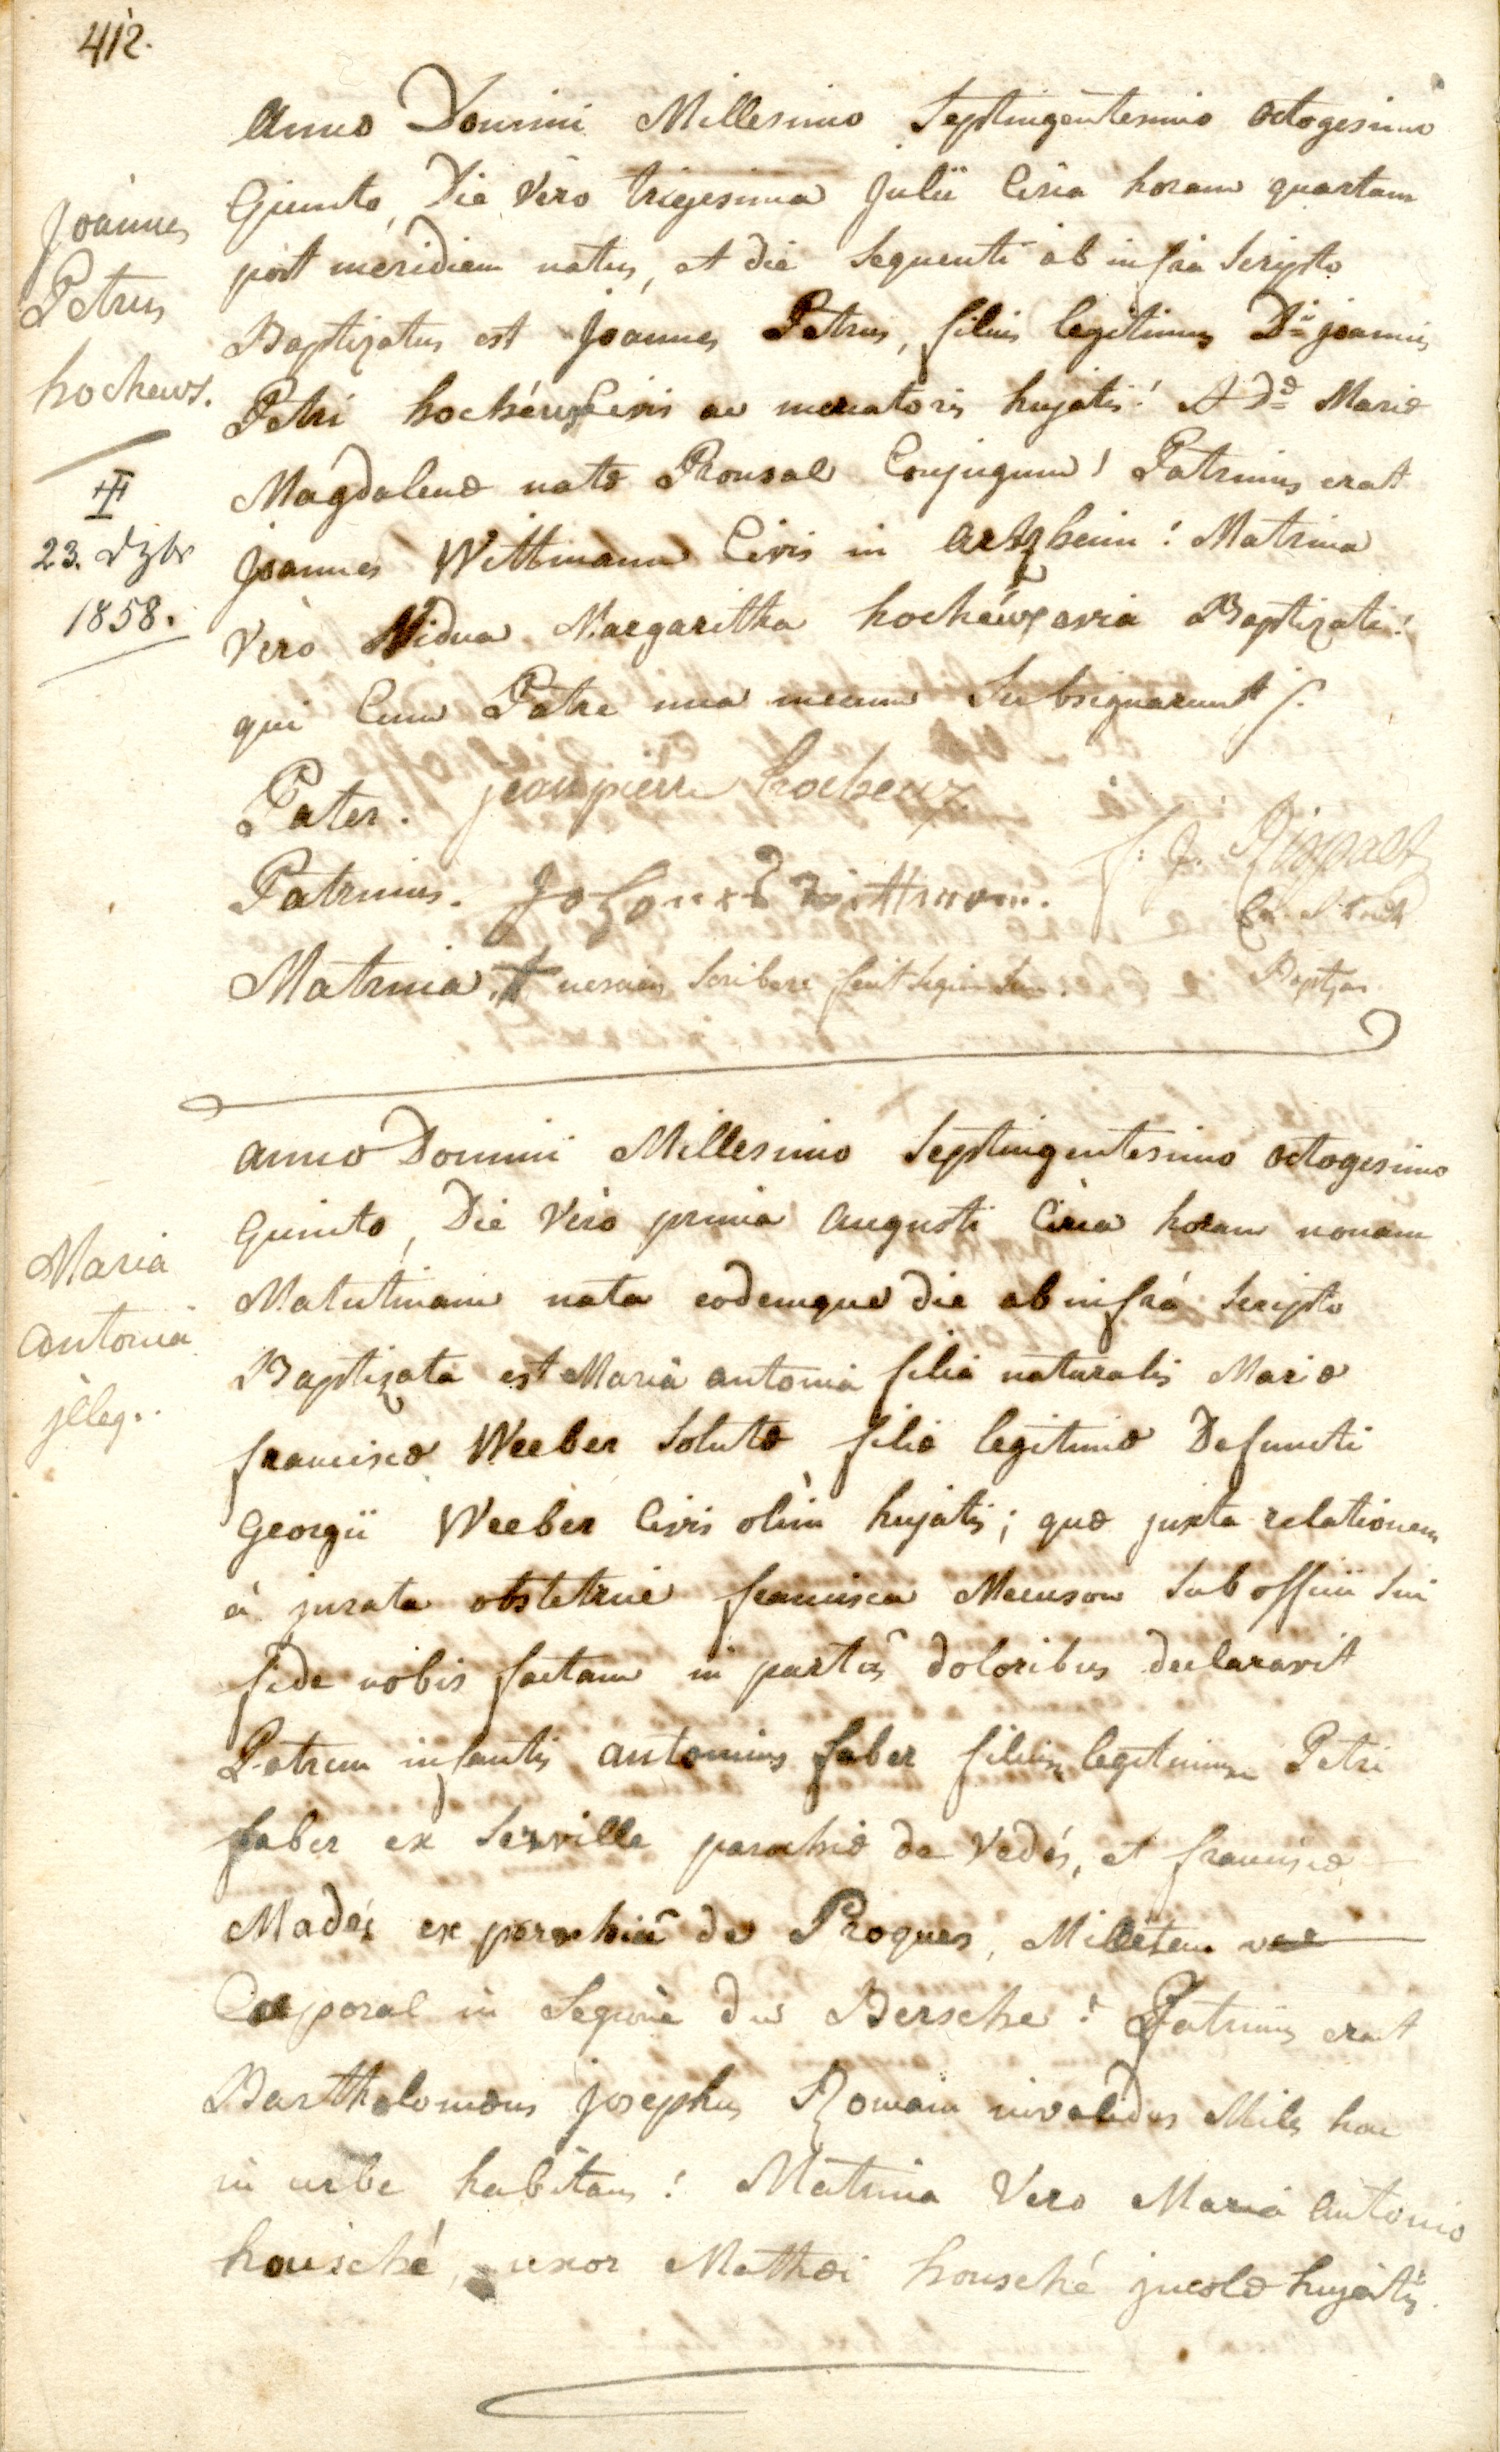 412.
Joannes
Petrus
hocheux.
23. Xbr
1858.
Anno Domini Millesimo Septingentesimo octogesimo
Quinto, Die Vero trigesima Julii Circa horam quartam
post meridiem natus, et die Sequenti ab infra Scripto
Baptizatus est Joannes Petrus, filius legitimus Dni joannis
Petri hocheux Civis ac mercatoris hujatis! et Dæ Mariæ
Magdalenæ natæ Pronsal Conjugum! Patrinus erat
Joannes Wittmann Civis in Artzheim! Matrina
Vero Vidua Margaritha hocheux avia Baptizati!
qui Cum Patre una mecum Subsignarunt
Pater. jean pierre hocheux
Patrinus. Johannes Wittmann.
Matrina + nesciens Scribere fecit Signum Suum.
Baptizans
Maria
Antonia
jlleg..
Anno Domini Millesimo Septingentesimo octogesimo
Quinto, Die Vero prima Augusti Circa horam nonam
Matutinam nata eodemque die ab infrá Scripto
Baptizata est Maria Antonia filia naturalis Mariæ
franciscæ Weeber Solutæ filiæ legitimæ Defuncti
Georgii Weeber Civis olim hujatis; quæ juxta relationem
à jurata obstetrice francisca Meuson Sub officii Sui
fide nobis factam in partûs doloribus declaravit
Patrem infantis Antonium faber filium legitimum Petri
faber ex Serville parochiæ de Vedés, et franciscæ
Madés ex parochiâ de Proques, Militem
Corporal in Legione de Bersche! Patrinus erat
Bartholomæus Josephus Romain invalidus Miles hac
in urbe habitans! Matrina Vero Maria Antonia
housché, uxor Mathæi housché jncolæ hujatis.